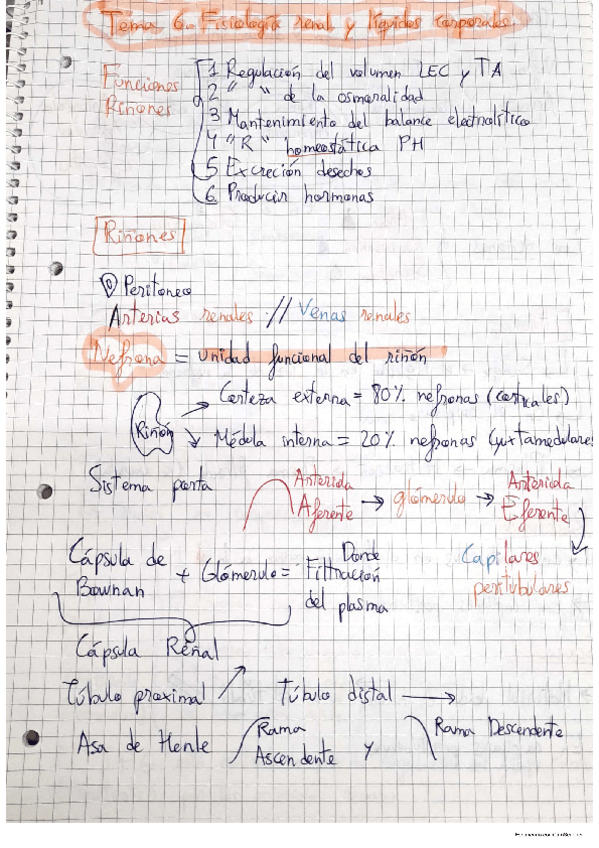 Tema 6. Fisiología renal y líquidos corporales
Funciones Riñones
1 Regulación del volumen LEC y TA
2 " " de la osmoralidad
3 Mantenimiento del balance electrolítico
4 "R" homeostática PH
5 Excreción desechos
6. Producir hormonas
Riñones
Peritoneo
Arterias renales // Venas renales
Nefrona = unidad funcional del riñón
Riñón
Corteza externa = 80% nefronas (corticales)
Médula interna = 20% nefronas (yuxtamedulares
Sistema porta
Arterida Aferente → glómerulo → Arterida Eferente
Capilares peritubulares
Cápsula de Bowman + Glómerulo = Donde Filtración del plasma
Cápsula Renal
Túbulo proximal
Túbulo distal →
Asa de Henle
Rama Ascendente y Rama Descendente